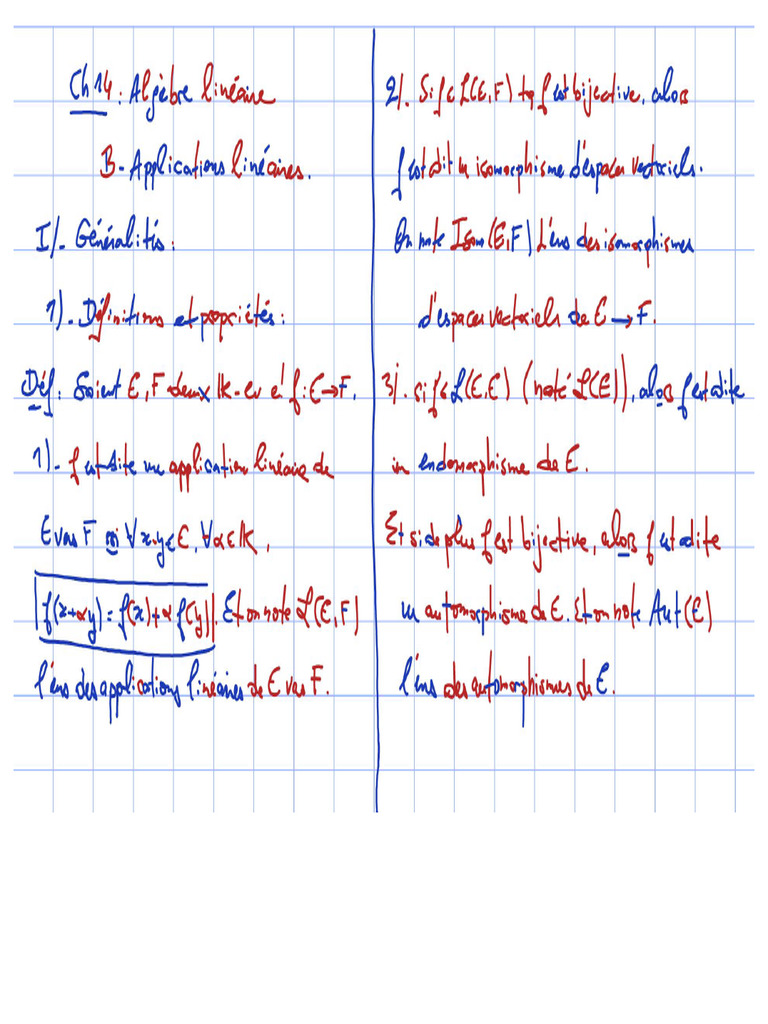 Ch 14 : Algèbre linéaire
B - Applications linéaires.
I/. Généralités :
1)- Définitions et propriétés :
Déf : Soient E, F deux IK-ev et f : E → F.
1)- f est dite une application linéaire de
E vers F ssi ∀x,y ∈ E, ∀α ∈ IK,
f(x+αy) = f(x) + α f(y). Et on note L(E,F)
l'ens des applications linéaires de E vers F.
2/. Si f ∈ L(E,F) tq f est bijective, alors
f est dit un isomorphisme d'espaces vectoriels.
On note Isom(E,F) L'ens des isomorphismes
d'espaces vectoriels de E → F.
3/. Si f ∈ L(E,E) (noté L(E)), alors f est dite
un endomorphisme de E.
Et si de plus f est bijective, alors f est dite
un automorphisme de E. Et on note Aut(E)
l'ens des automorphismes de E.